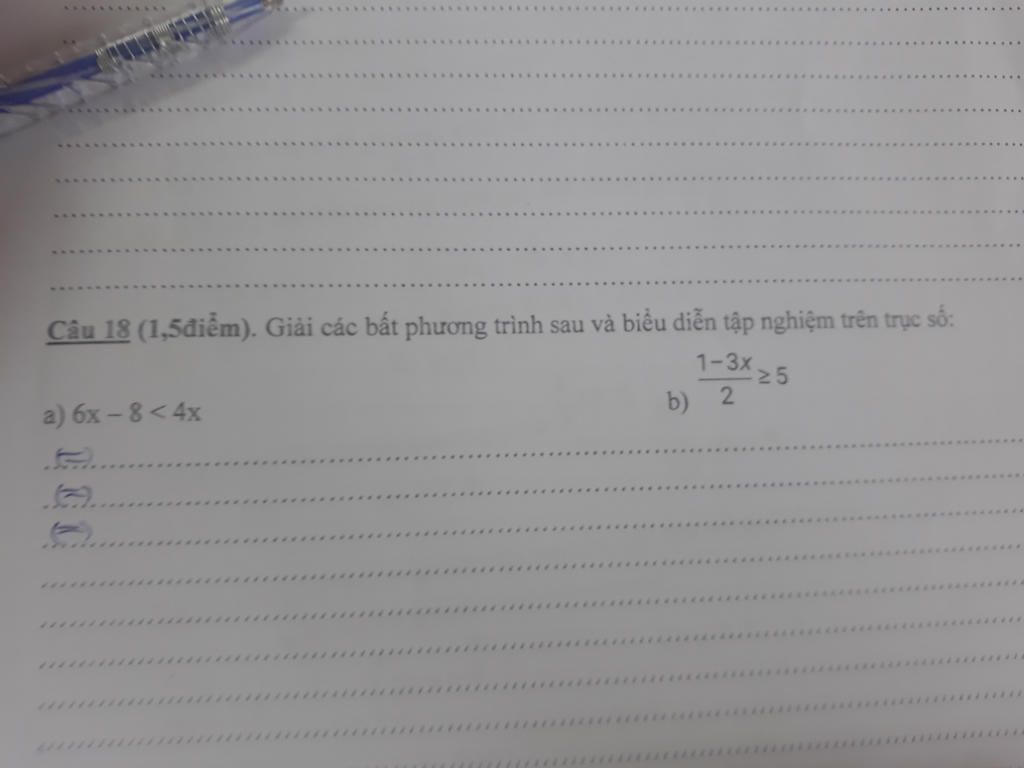 Câu 18 (1,5điểm). Giải các bất phương trình sau và biểu diễn tập nghiệm trên trục số:
a) 6x – 8 < 4x
b) \frac{1-3x}{2} ≥ 5
(=)
(=)
(=)